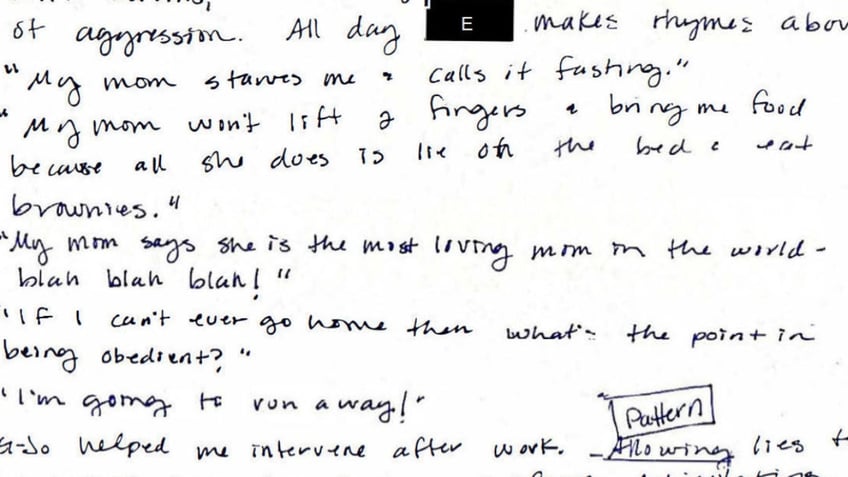 of aggression. All day E makes rhymes abou
"My mom starves me & calls it fasting."
"My mom won't lift 2 fingers & bring me food
because all she does is lie on the bed & eat
brownies."
"My mom says she is the most loving mom in the world -
blah blah blah!"
"If I can't ever go home then what's the point in
being obedient?"
"I'm going to run away!"
Pattern
helped me intervene after work. - Allowing lies t